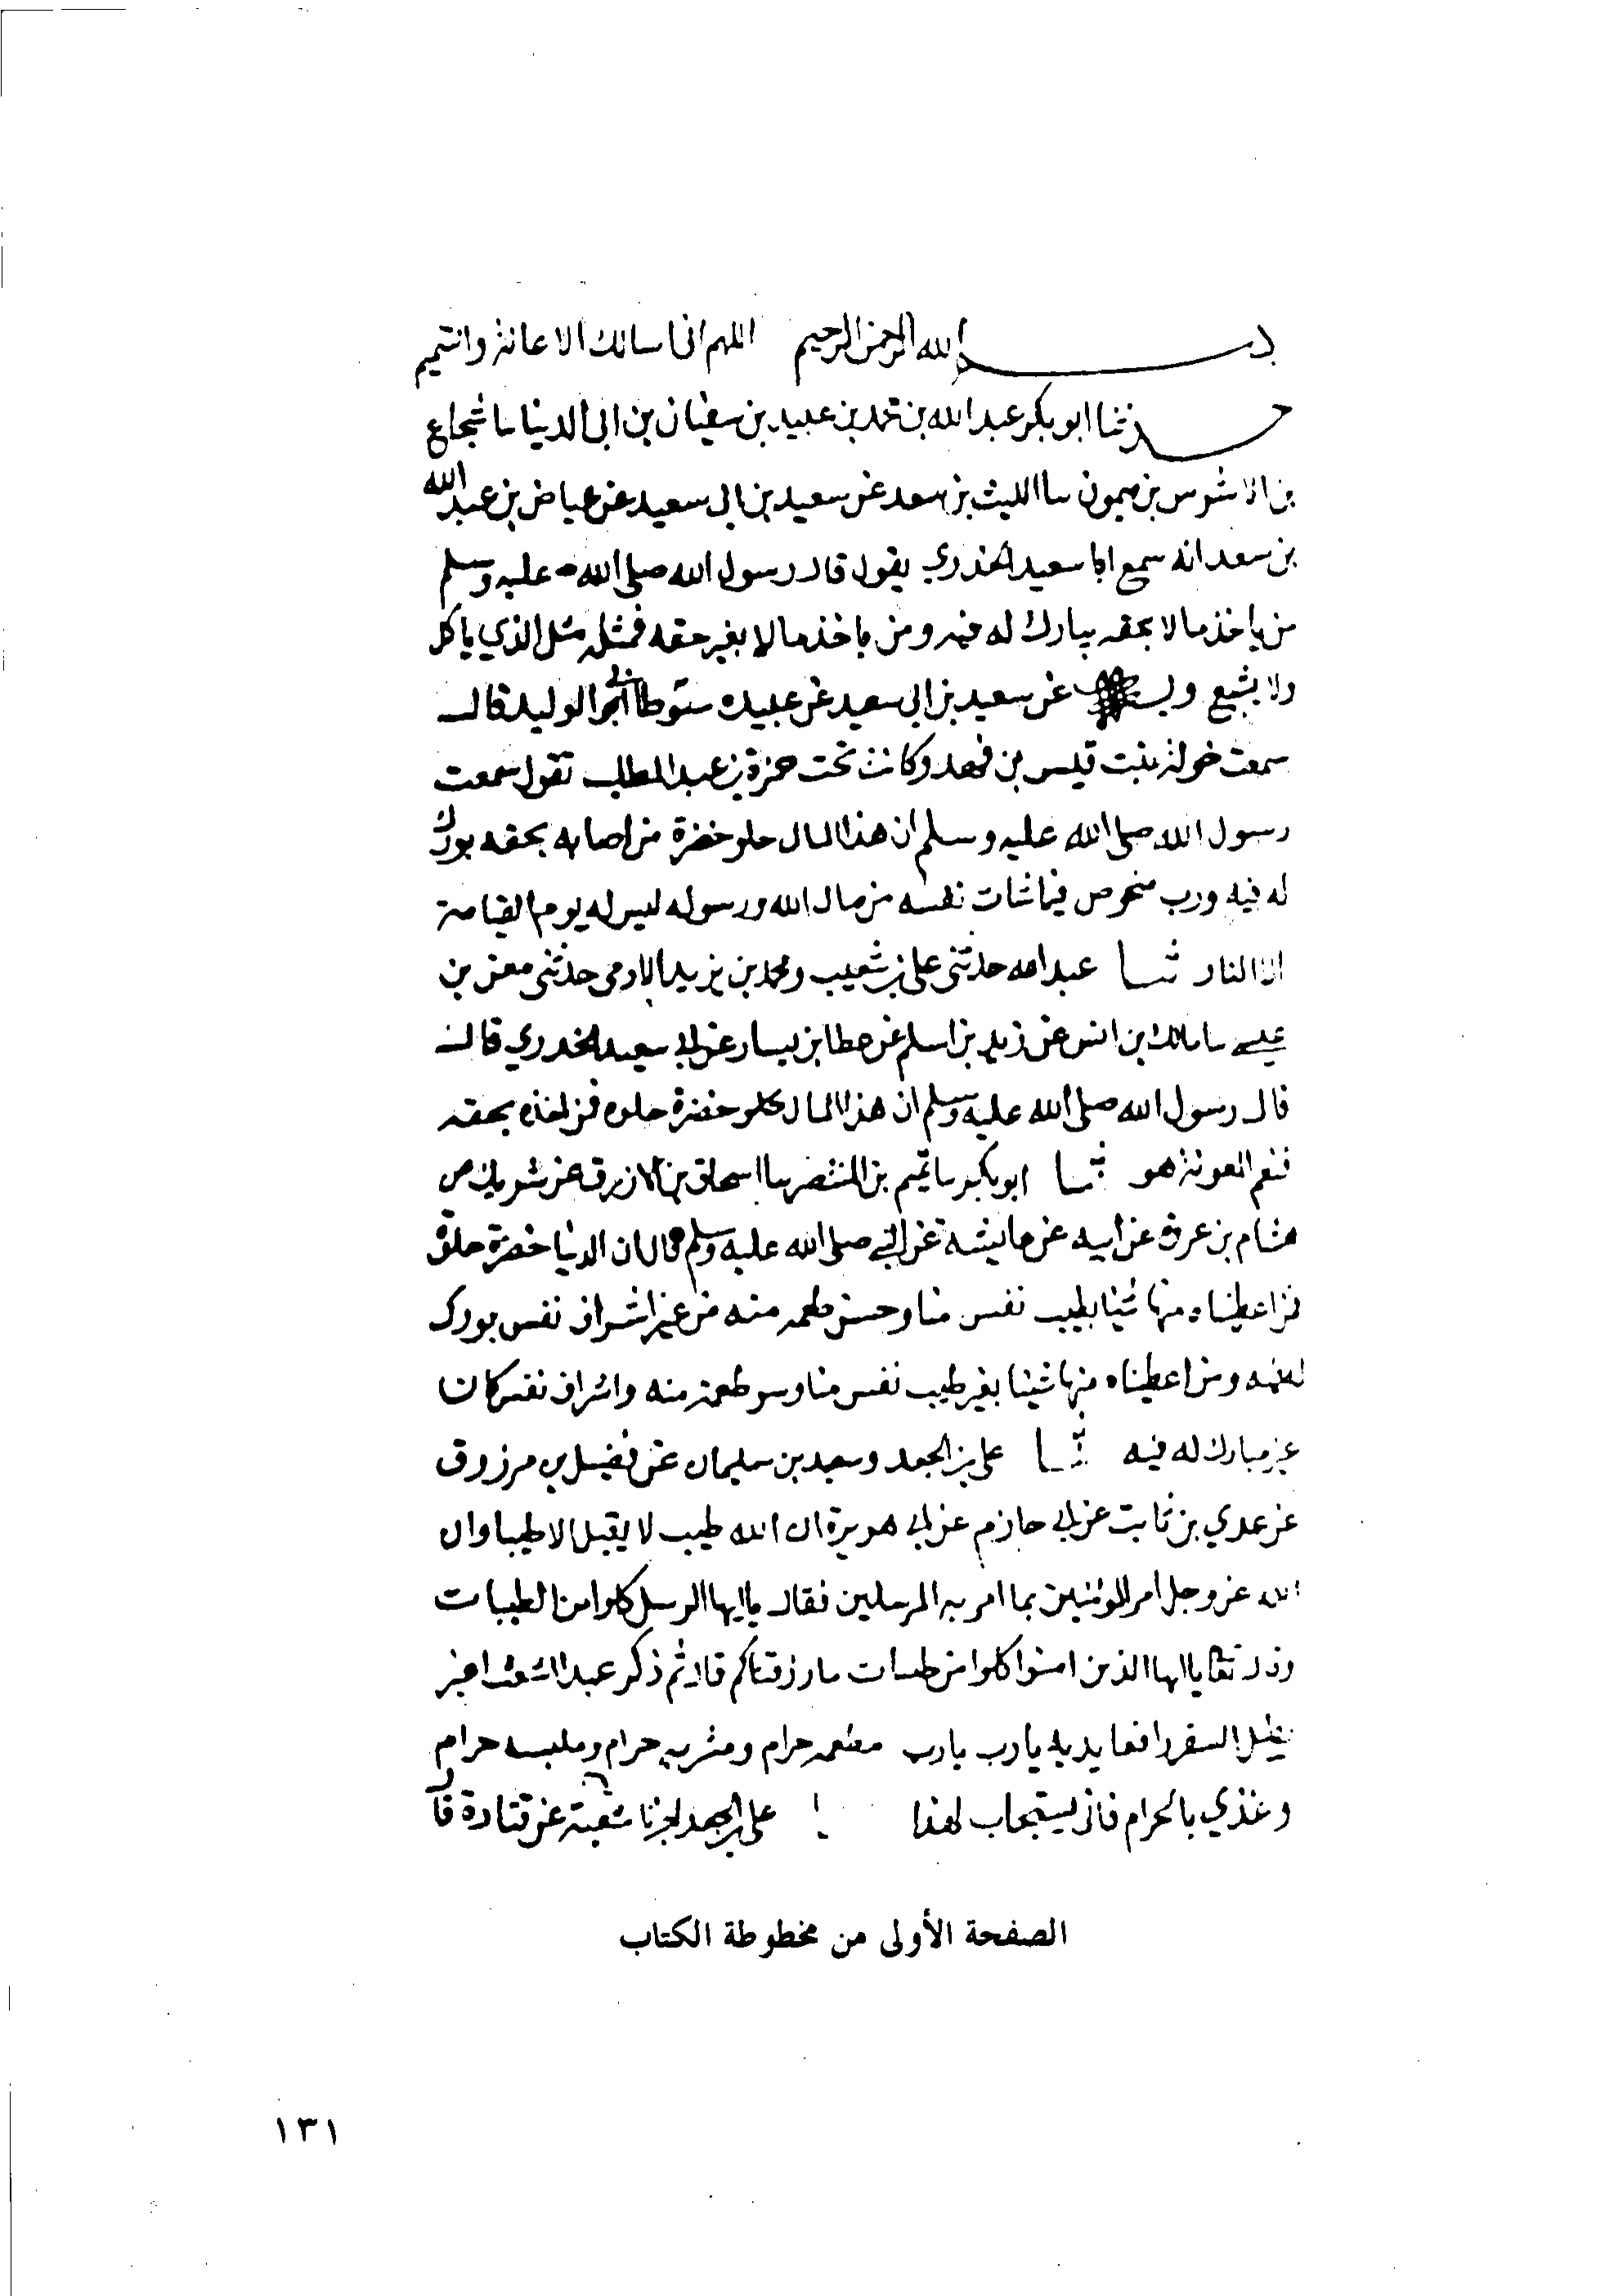 بسم الله الرحمن الرحيم اللهم انا نسالك الاعانة والتتميم
حدثنا ابو بكر عبد الله بن محمد بن عبيد بن سفيان بن ابي الدنيا سا شجاع
بن الاشرس بن ميمون سا الليث بن سعد عن سعيد بن ابي سعيد عن عياض بن عبد الله
بن سعد انه سمع ابا سعيد الخدري يقول قال رسول الله صلى الله عليه وسلم
من ياخذ مالا بحقه يبارك له فيه ومن ياخذ مالا بغير حقه فمثله مثل الذي ياكل
ولا يشبع وبه عن سعيد بن ابي سعيد عن عبيده سنوطا ابي الوليد قال
سمعت خولة بنت قيس بن فهد وكانت تحت حمزة بن عبد المطلب تقول سمعت
رسول الله صلى الله عليه وسلم ان هذا المال حلو خضرة من اصابه بحقه بورك
له فيه ورب متخوض فيما شات نفسه من مال الله ورسوله ليس له يوم القيامة
الا النار ثنا عبد الله حدثني علي بن شعيب ومحمد بن يزيد الادمي حدثني معن بن
عيسى سا مالك بن انس عن زيد بن اسلم عن عطا بن يسار عن ابي سعيد الخدري قال
قال رسول الله صلى الله عليه وسلم ان هذا المال حلو خضرة حلوه فمن اخذه بحقه
فنعم المعونة هو ثنا ابو بكر سا تميم بن المنتصر سا اسحاق بن الازرق عن شريك عن
هشام بن عروة عن ابيه عن عايشة عن النبي صلى الله عليه وسلم قال ان الدنيا خضرة حلوة
فمن اعطيناه منها شيئا بطيب نفس منا وحسن طعمه منه من غير اشراف نفس بورك
له فيه ومن اعطيناه منها شيئا بغير طيب نفس منا وسو طعمة منه واشراف نفس كان
غير مبارك له فيه ثنا علي بن الجعد وسعيد بن سليمان عن فضيل بن مرزوق
عن عدي بن ثابت عن ابي حازم عن ابي هريرة ان الله طيب لا يقبل الا طيبا وان
الله عز وجل امر المومنين بما امر به المرسلين فقال يا ايها الرسل كلوا من الطيبات
وقال تعالى يا ايها الذين امنوا كلوا من طيبات ما رزقناكم قال ثم ذكر عبدا اشعث اغبر
يطيل السفر رافعا يديه يا رب يا رب مطعمه حرام ومشربه حرام وملبسه حرام
وغذي بالحرام فانى يستجاب لهذا علي بن الجعد اخبرنا شعبة عن قتادة قال
الصفحة الأولى من مخطوطة الكتاب
١٣١